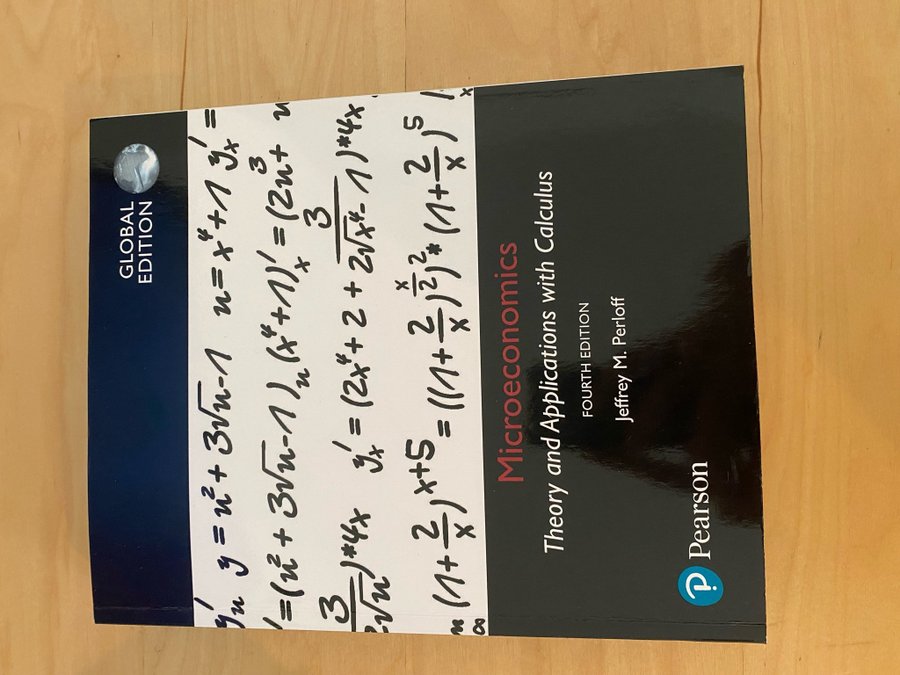 GLOBAL
EDITION
y'u y = u² + 3√u-1 u = x⁴+1 y'x =
'=(u² + 3√u-1)'u (x⁴+1)'x = (2u + 3
3/2√u)*4x y'x = (2x⁴ + 2 + 3/2√x⁴-1)*4x
(1+2/x)^x+5 = ((1+2/x)^x/2)²*(1+2/x)⁵
Microeconomics
Theory and Applications with Calculus
FOURTH EDITION
Jeffrey M. Perloff
Pearson